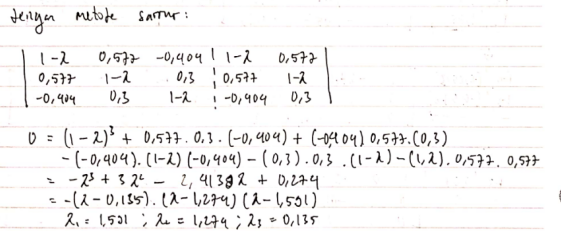 dengan metode sarrus:
| 1-λ 0,577 -0,404 ¦ 1-λ 0,577 |
| 0,577 1-λ 0,3 ¦ 0,577 1-λ |
| -0,404 0,3 1-λ ¦ -0,404 0,3 |
0 = (1-λ)³ + 0,577. 0,3. (-0,404) + (-0,404) 0,577. (0,3)
-(-0,404). (1-λ) (-0,404) - (0,3). 0,3 . (1-λ) - (1,λ). 0,577. 0,577
= -λ³ + 3λ² - 2,4138λ + 0,274
= -(λ-0,135). (λ-1,274) (λ-1,591)
λ₁ = 1,591 ; λ₂ = 1,274 ; λ₃ = 0,135